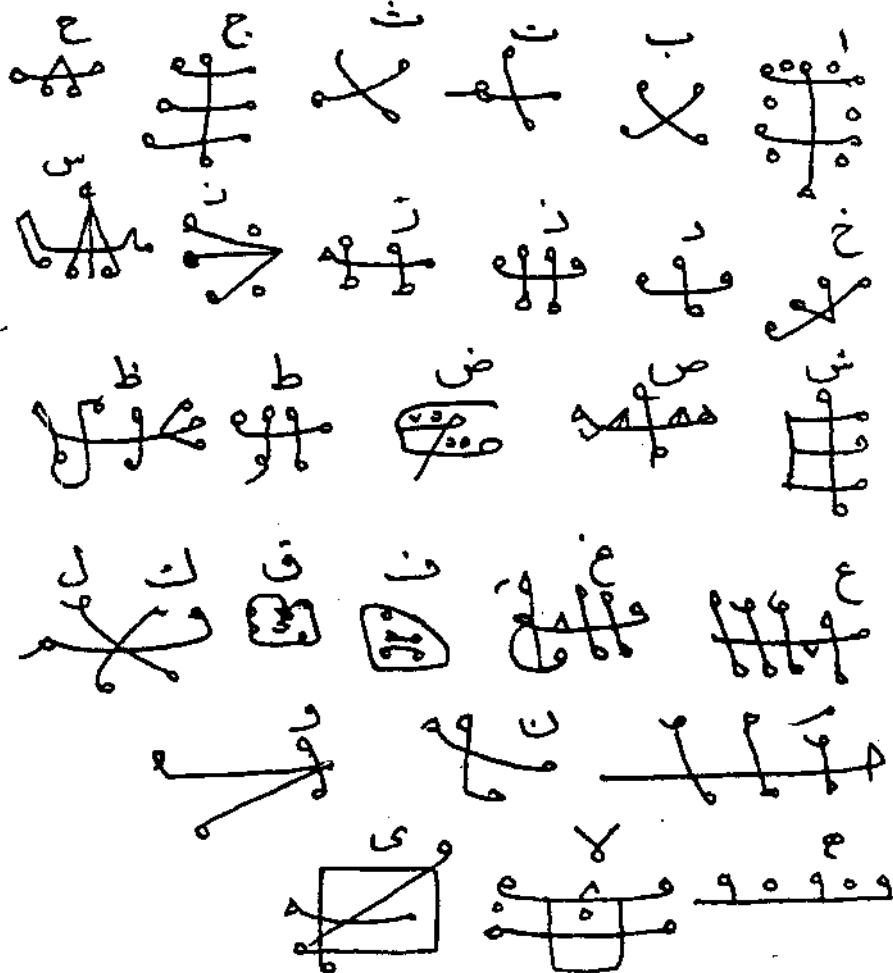 ا ب ت ث ج ح
خ د ذ ر ز س
ش ص ض ط ظ
ع غ ف ق ك ل
م ن و
ه لا ى